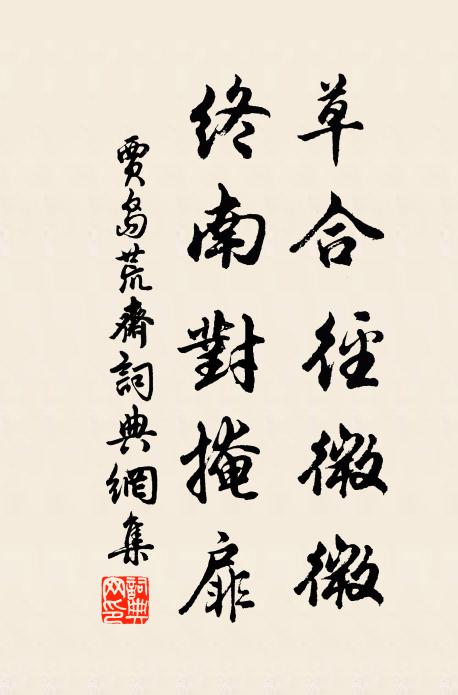 草合徑微微
終南對掩扉
賈島荒齋詞典網集
詞典